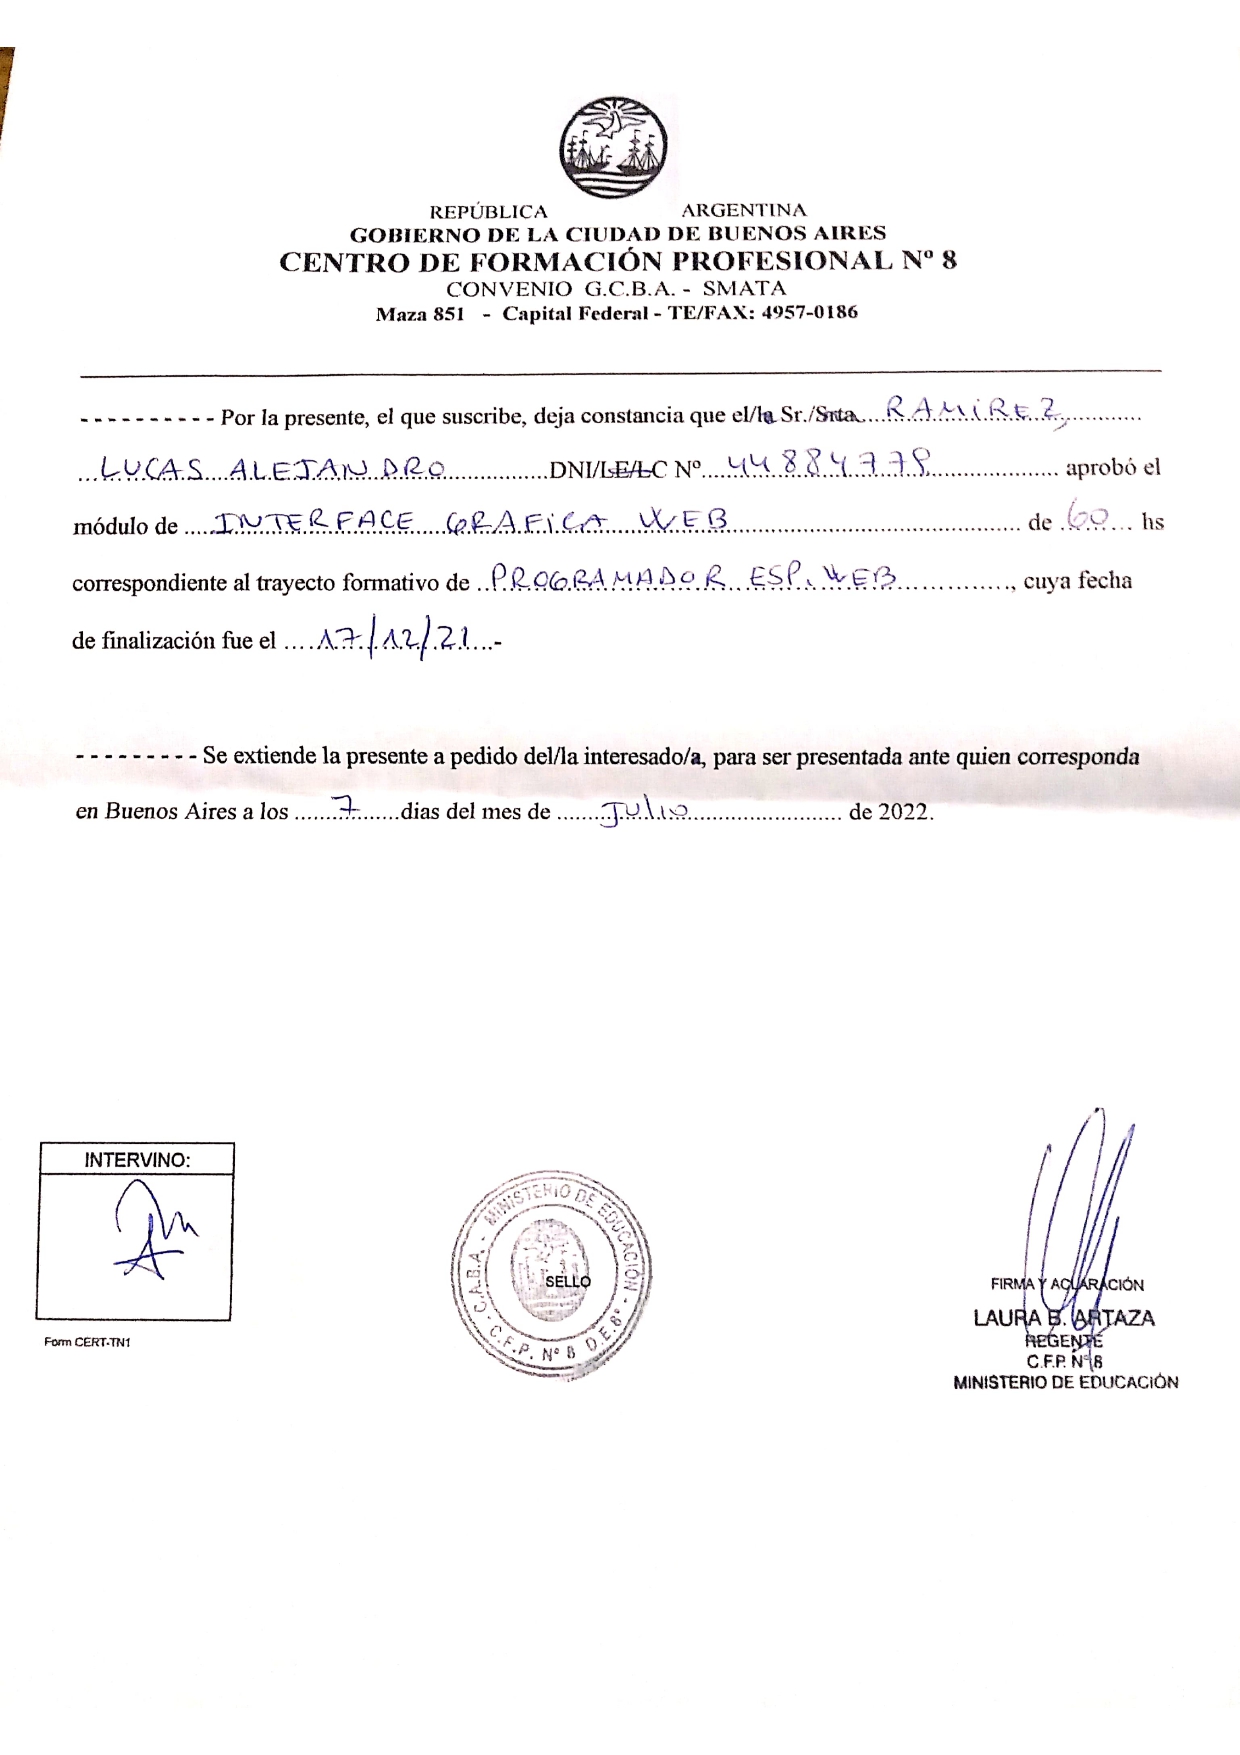 REPÚBLICA ARGENTINA
GOBIERNO DE LA CIUDAD DE BUENOS AIRES
CENTRO DE FORMACIÓN PROFESIONAL Nº 8
CONVENIO G.C.B.A. - SMATA
Maza 851 - Capital Federal - TE/FAX: 4957-0186
- - - - - - - - - - Por la presente, el que suscribe, deja constancia que el/la Sr./Srta....RAMIREZ,............
...LUCAS ALEJANDRO...............DNI/LE/LC Nº....44884778................... aprobó el
módulo de .....INTERFACE GRAFICA WEB............................................ de .60.... hs
correspondiente al trayecto formativo de ..PROGRAMADOR ESP. WEB..............., cuya fecha
de finalización fue el ....17/12/21....-
- - - - - - - - - Se extiende la presente a pedido del/la interesado/a, para ser presentada ante quien corresponda
en Buenos Aires a los .......7.......dias del mes de ........Julio....................... de 2022.
INTERVINO:
Form CERT-TN1
C.A.B.A. - MINISTERIO DE EDUCACIÓN -
C.F.P. Nº 8 D.E.8º
SELLO
FIRMA Y ACLARACIÓN
LAURA B. ARTAZA
REGENTE
C.F.P. Nº 8
MINISTERIO DE EDUCACIÓN